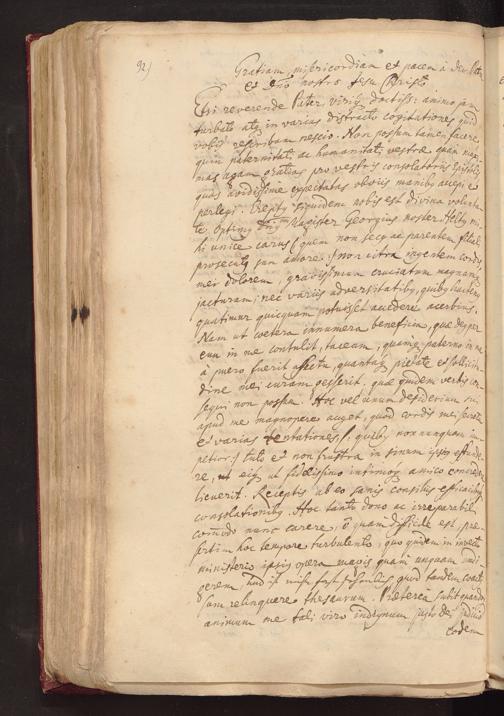 92)
Gratiam, misericordiam et pacem a deo Patre
et Dno nostro Jesu Christo
Etsi reverende Pater, virq doctiss: animo jam
turbato atq in varias distracto cogitationes quid
vobis rescribam nescio. Non possum tamen facere
quin paternitati, ac humanitati vestræ quam maxi-
mas agam gratias pro vestris consolatoriis Epistolis
quas avidissime expectatas obviis manibq accepi et
perlegi. Ereptq siquidem nobis est divina volunta-
te optimq Magister Georgius noster
hi unice carus (quem non secq ac parentem filial
prosecutq sum amore) non citra ingentem cordis
mei dolorem, gravissimum cruciatum magnamq
jacturam; nec variis adversitatibq, quibq
quatimur quicquam potuisset accedere acerbius.
Nam ut cœtera innumera beneficia, quæ deq per
eum in me contulit, taceam, quamq paterno in me
a puero fuerit affectu, quantaq pietate et sollicitu-
dine mei curam gesserit. quæ quidem verbis con-
sequi non possum. Hoc vel unum desiderium sui
apud me magnopere auget, quod cordis mei secreta
et varias tentationes (quibq non nunquam im-
petior) tuto et non frustra in sinum ipsiq effunde-
re, ut ejq ut fidelissimo intimoq amico
licuerit. Receptis ab eo sanis consiliis efficacibq
consolationibq. Hoc tanto dono ac irreparabili
com̄odo nunc carere, o quam difficile est, præ-
sertim hoc tempore turbulento, quo quidem in
ministerio ipsiq opera magis quam unquam indi-
gerem, quid tandem
sum relinquere thesaurum. Præterea subit quandoq
animum me tali viro indignum justo dei judicio
eodem